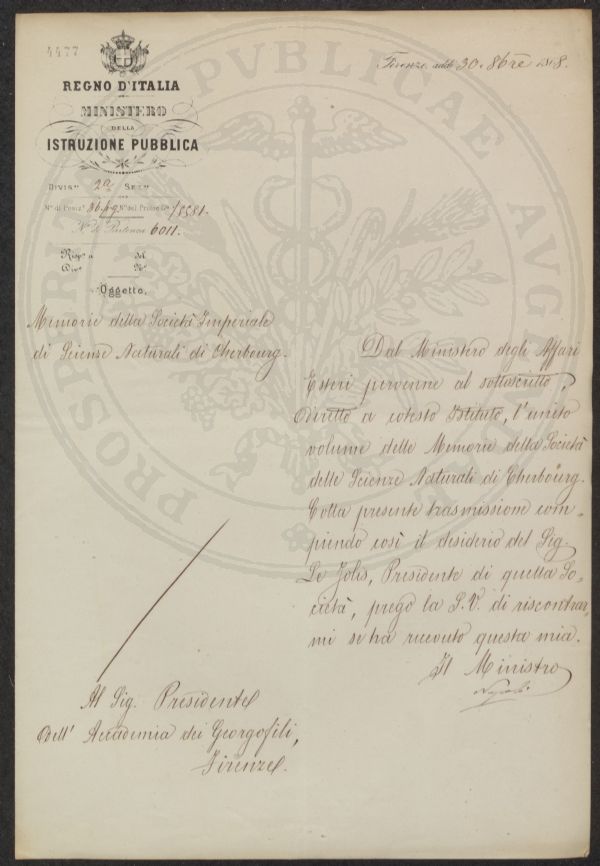 4477
Firenze, addì 30. 8bre 1868.
REGNO D'ITALIA
MINISTERO
DELLA
ISTRUZIONE PUBBLICA
Divisne 2a Sezne
N.º di Posiz.e N.º del Protoc.lo 18581.
N.º di Partenza 6011.
Risp.ta a del
Div.ne N.º
Oggetto,
Memorie della Società Imperiale
di Scienze Naturali di Cherbourg.
Dal Ministero degli Affari
Esteri pervenne al sottoscritto,
diretto a cotesto Istituto, l'unito
volume delle Memorie della Società
delle Scienze Naturali di Cherbourg.
Colla presente trasmissione com-
piendo così il desiderio del Sig.
Le Jolis, Presidente di quella So-
cietà, prego la S.V. di riscontrar-
mi se ha ricevuto questa mia.
Il Ministro
Al Sig. Presidente
dell' Accademia dei Georgofili,
Firenze.
PROSPERITATI PUBLICAE AUGENDAE